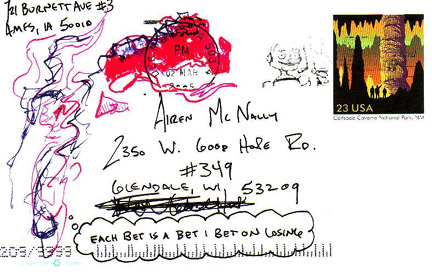 721 BURNETT AVE #3
AMES, IA 50010
PM
02 MAR
23 USA
Carlsbad Caverns National Park, NM
AIREN MCNALLY
2350 W. GOOD HOPE RD.
#349
GLENDALE, WI 53209
EACH BET IS A BET I BET ON LOSING
209/9999